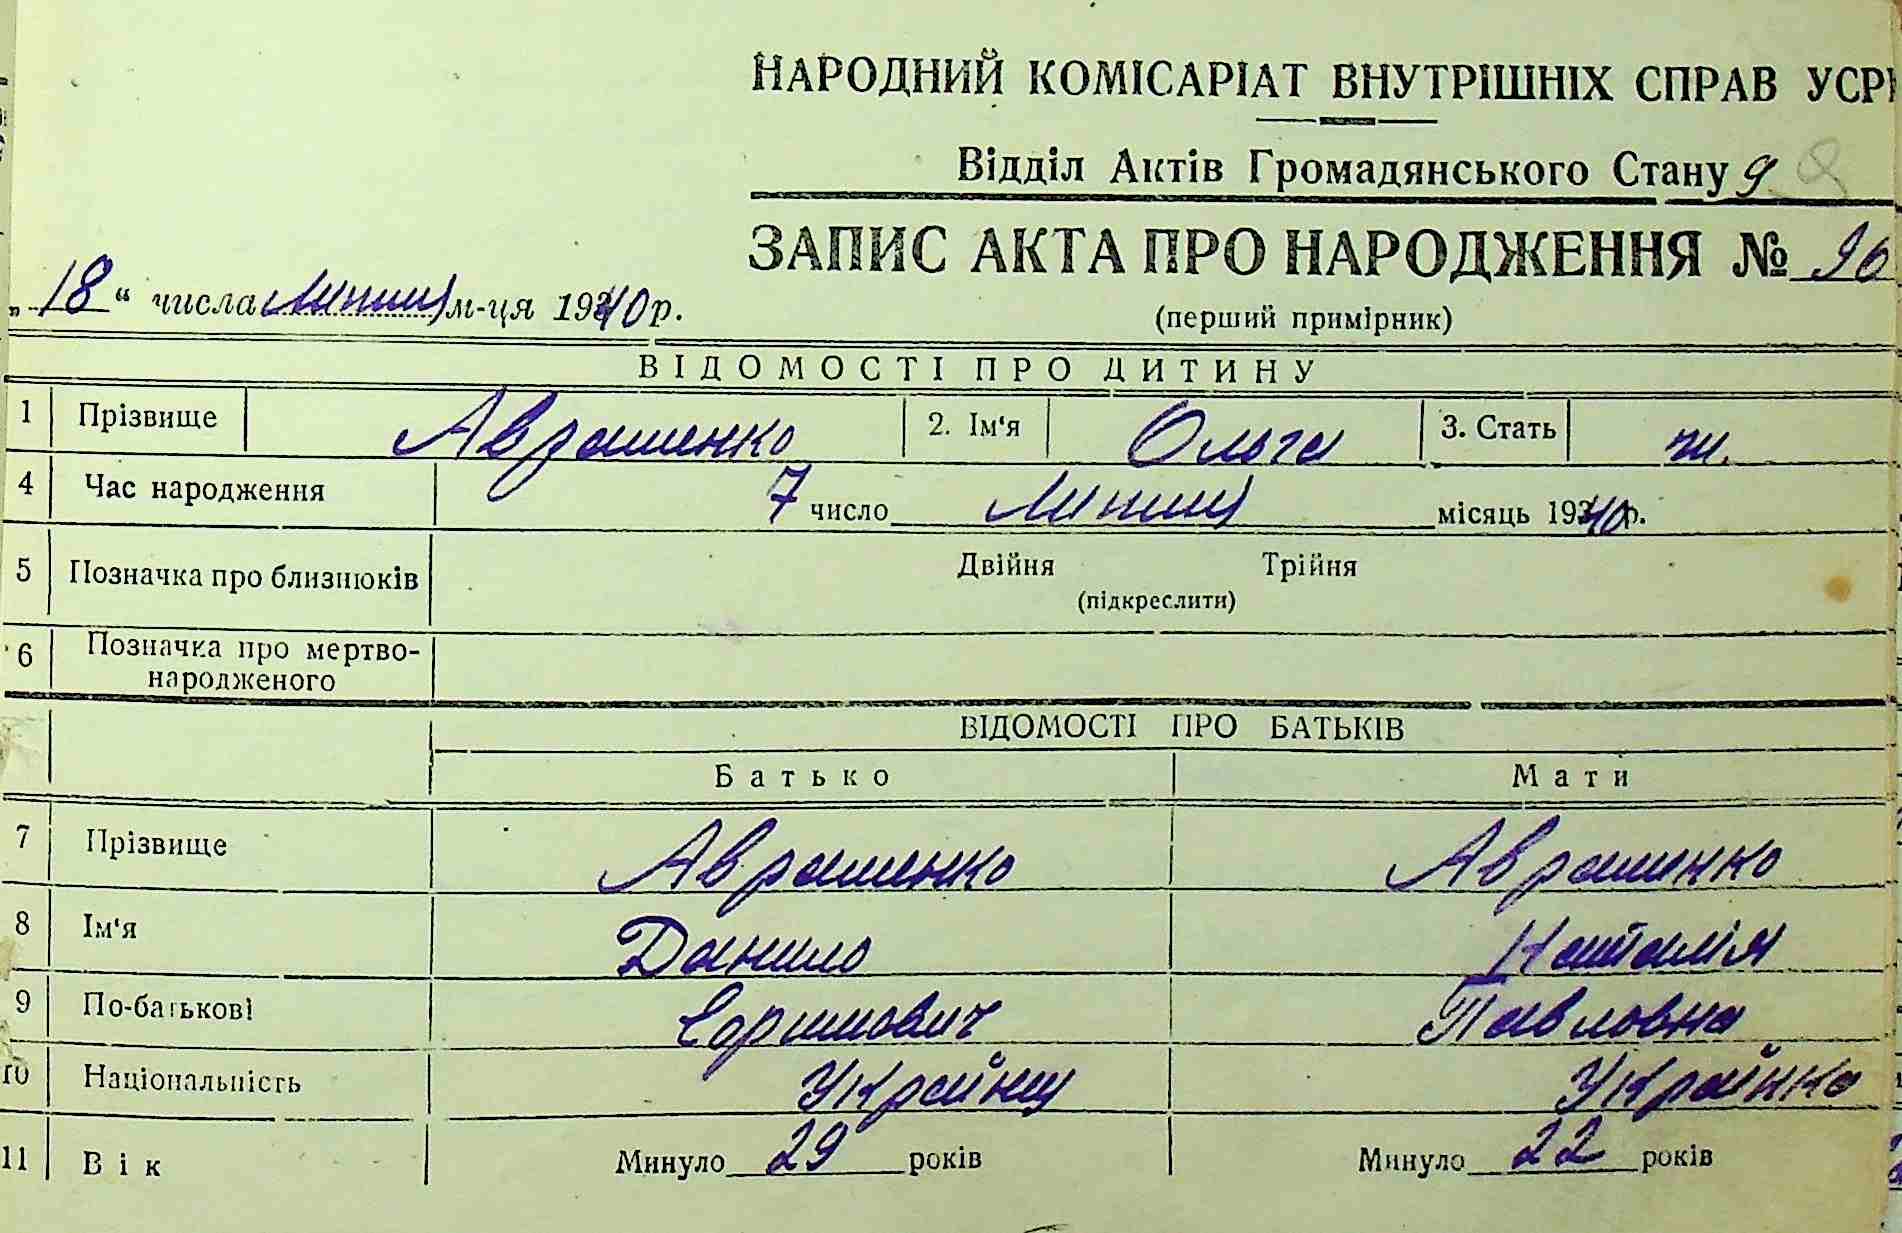 НАРОДНИЙ КОМІСАРІАТ ВНУТРІШНІХ СПРАВ УСРР
Відділ Актів Громадянського Стану 9
ЗАПИС АКТА ПРО НАРОДЖЕННЯ № 96
„18“ числа Липня м-ця 1940 р.
(перший примірник)
ВІДОМОСТІ ПРО ДИТИНУ
1 Прізвище Аврашенко 2. Ім'я Ольга 3. Стать ж.
4 Час народження 7 число Липня місяць 1940 р.
5 Позначка про близнюків Двійня Трійня
(підкреслити)
6 Позначка про мертво-
народженого
ВІДОМОСТІ ПРО БАТЬКІВ
Батько Мати
7 Прізвище Аврашенко Аврашенко
8 Ім'я Данило Наталія
9 По-батькові Павловна
10 Національність Українц Українка
11 Вік Минуло 29 років Минуло 22 років